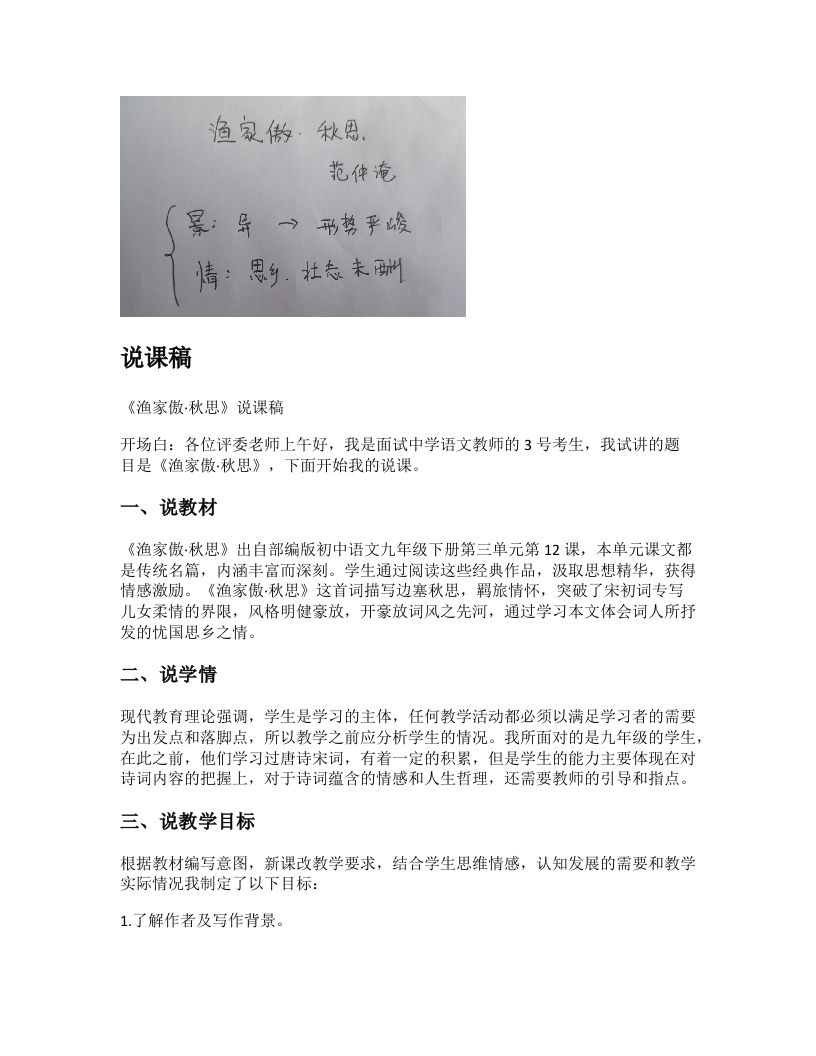 渔家傲·秋思
范仲淹
景：异 → 形势严峻
情：思乡．壮志未酬
说课稿
《渔家傲·秋思》说课稿
开场白：各位评委老师上午好，我是面试中学语文教师的 3 号考生，我试讲的题
目是《渔家傲·秋思》，下面开始我的说课。
一、说教材
《渔家傲·秋思》出自部编版初中语文九年级下册第三单元第 12 课，本单元课文都
是传统名篇，内涵丰富而深刻。学生通过阅读这些经典作品，汲取思想精华，获得
情感激励。《渔家傲·秋思》这首词描写边塞秋思，羁旅情怀，突破了宋初词专写
儿女柔情的界限，风格明健豪放，开豪放词风之先河，通过学习本文体会词人所抒
发的忧国思乡之情。
二、说学情
现代教育理论强调，学生是学习的主体，任何教学活动都必须以满足学习者的需要
为出发点和落脚点，所以教学之前应分析学生的情况。我所面对的是九年级的学生，
在此之前，他们学习过唐诗宋词，有着一定的积累，但是学生的能力主要体现在对
诗词内容的把握上，对于诗词蕴含的情感和人生哲理，还需要教师的引导和指点。
三、说教学目标
根据教材编写意图，新课改教学要求，结合学生思维情感，认知发展的需要和教学
实际情况我制定了以下目标：
1.了解作者及写作背景。